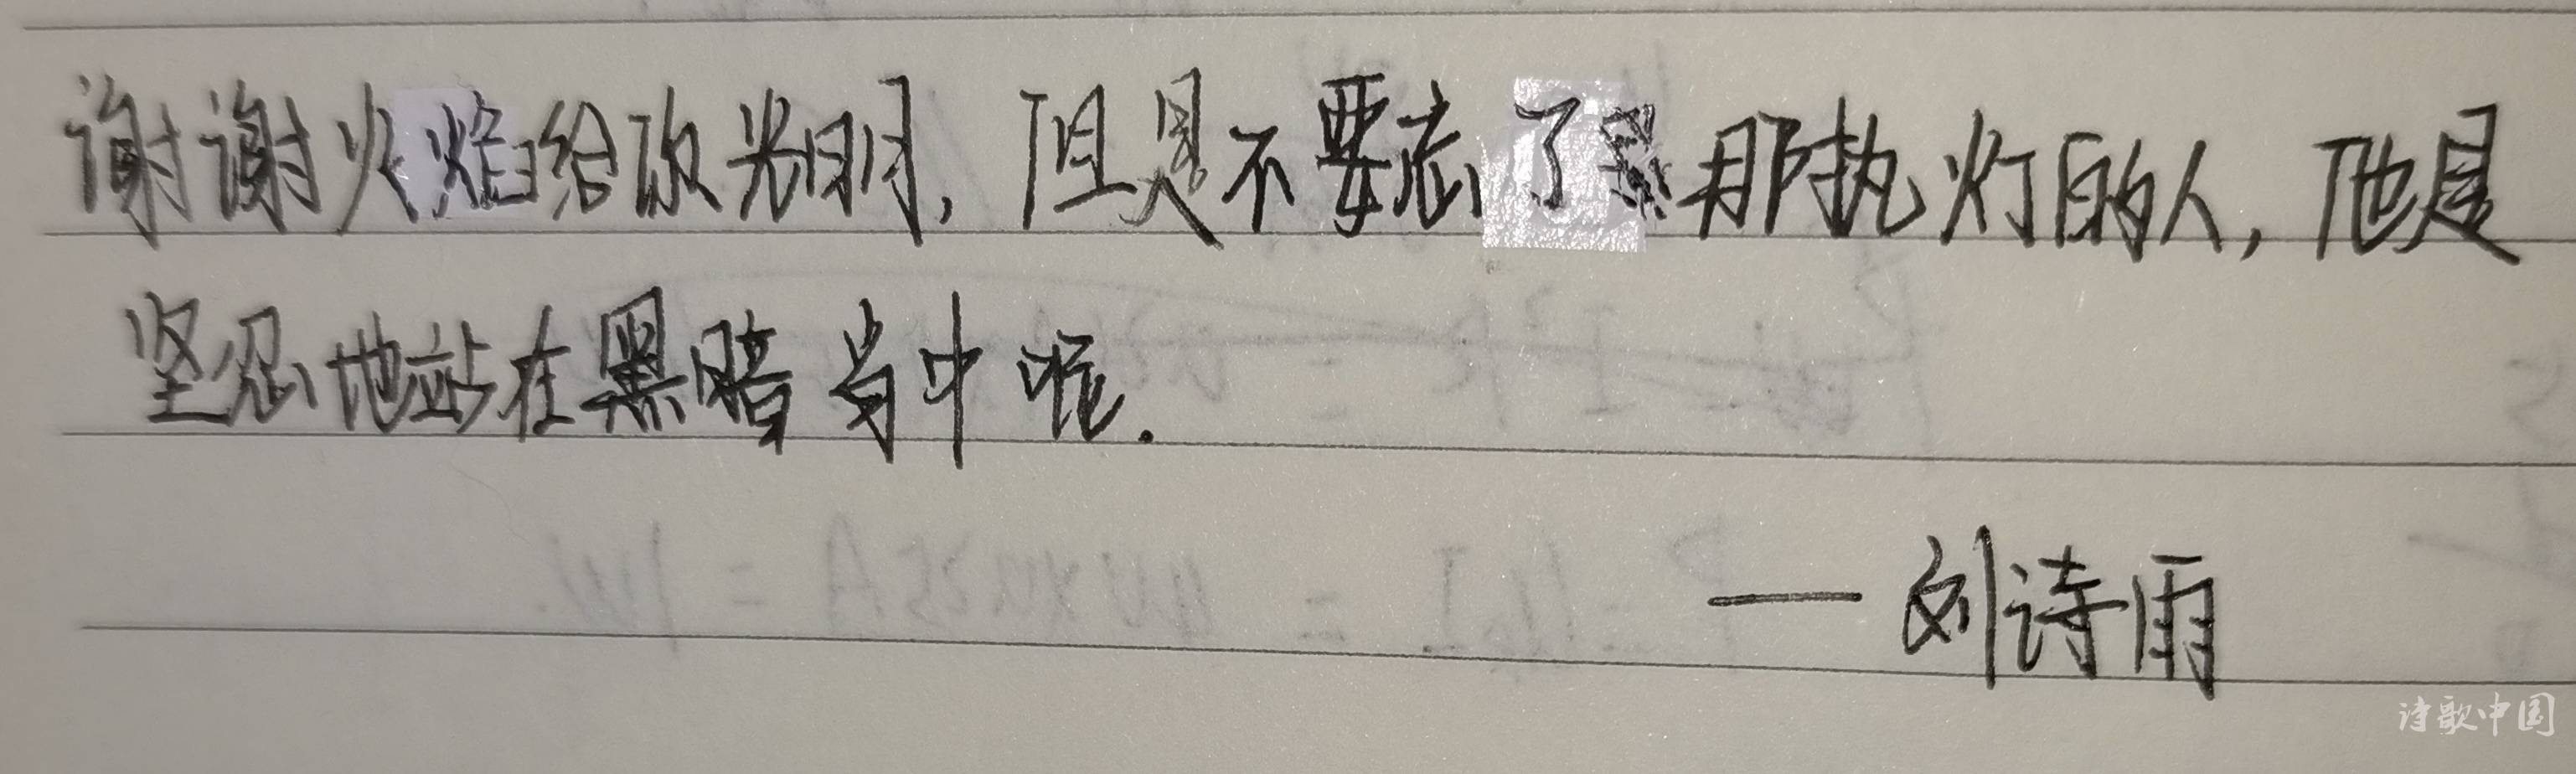 谢谢火焰给你光明,但是不要忘了那执灯的人,他是
坚忍地站在黑暗当中呢.
——刘诗雨
诗歌中国